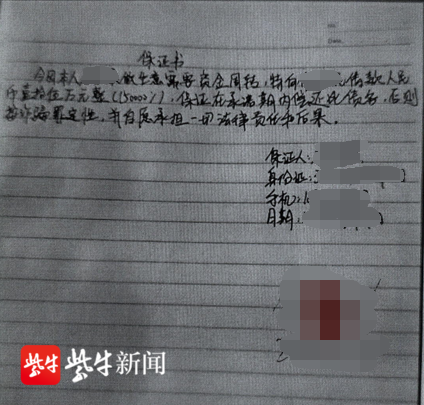 保证书
今因本人 做生意需要资金周转,特向 借款人民
币壹拾伍万元整(15000),保证在承诺期内偿还此债务,否则
按诈骗罪定性,并自愿承担一切法律责任和后果。
保证人:
身份证:
手机:1
日期:
紫牛 紫牛新闻